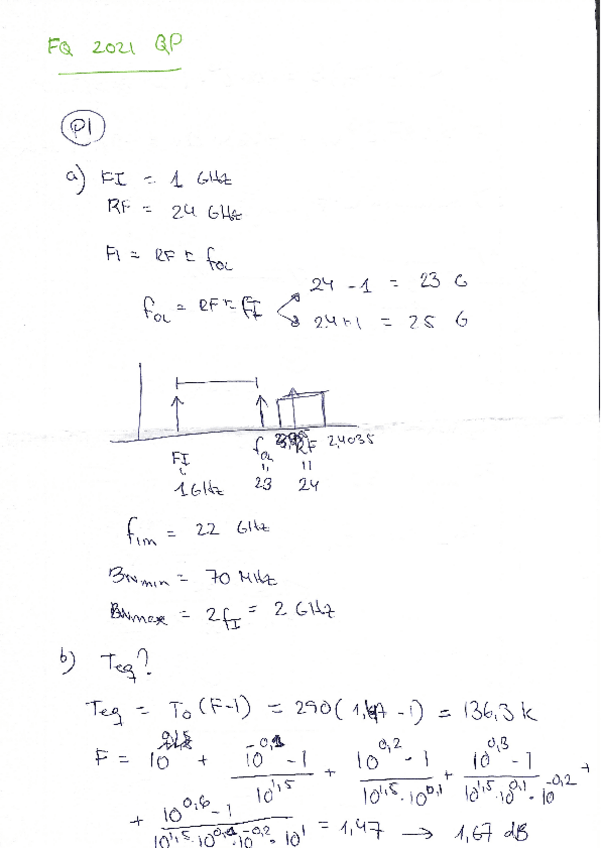 FQ 2021 QP
P1
a) FI = 1 GHz
RF = 24 GHz
FI = RF ± fOL
fOL = RF ± FI
24 - 1 = 23 G
24 + 1 = 25 G
FI fOL RF 24,035
1 GHz 23 24
fim = 22 GHz
BWmin = 70 MHz
BWmax = 2fI = 2 GHz
b) Teq?
Teq = T0 (F-1) = 290 (1,47 - 1) = 136,3 k
F = 10^0,15 + (10^-0,1 - 1)/(10^1,5) + (10^0,2 - 1)/(10^1,5 · 10^0,1) + (10^0,3 - 1)/(10^1,5 · 10^0,1 · 10^-0,2) +
+ (10^0,6 - 1)/(10^1,5 · 10^0,1 · 10^-0,2 · 10^1) = 1,47 → 1,67 dB